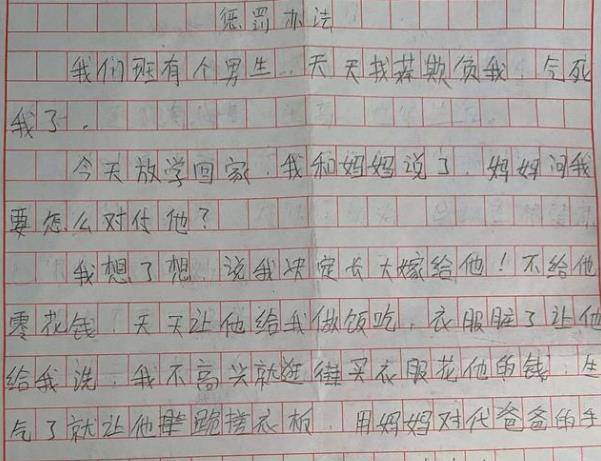 惩罚办法
我们班有个男生，天天找茬欺负我，气死
我了。
今天放学回家，我和妈妈说了，妈妈问我
要怎么对付他？
我想了想，说我决定长大嫁给他！不给他
零花钱，天天让他给我做饭吃，衣服脏了让他
给我洗，我不高兴就逛街买衣服花他的钱，生
气了就让他跪搓衣板，用妈妈对代爸爸的手